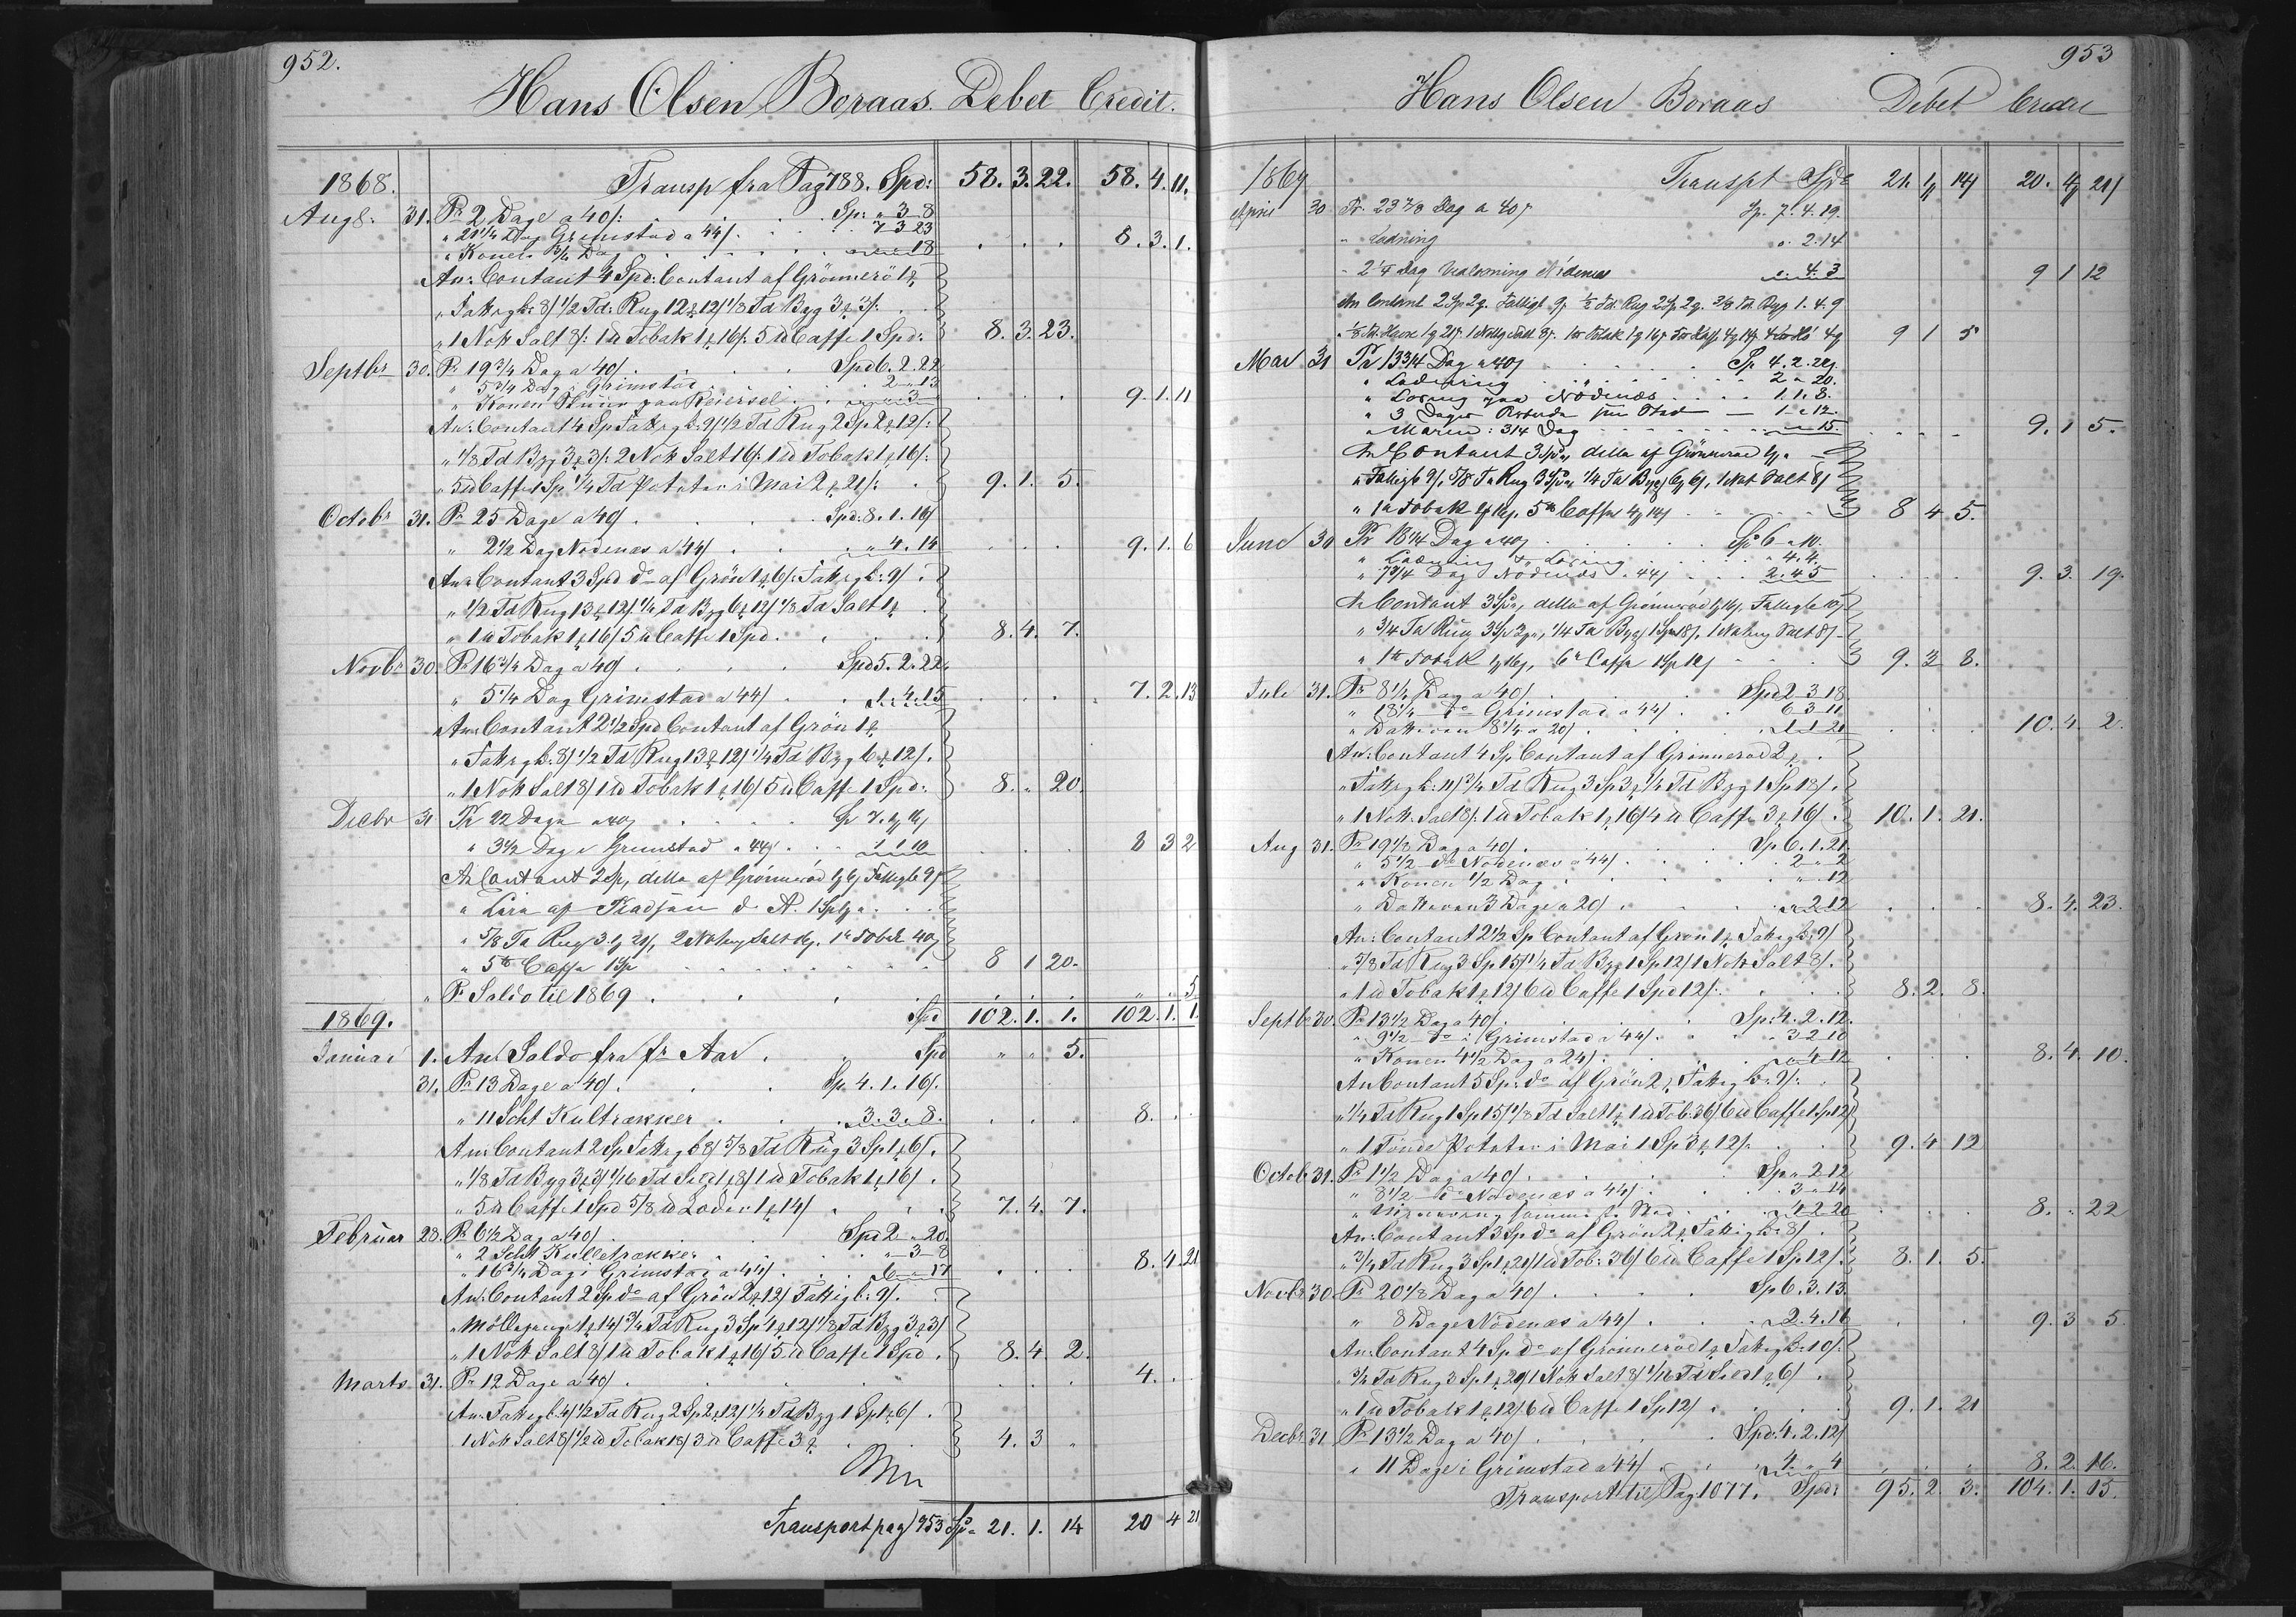 952.
Hans Olsen Boraas. Debet Credit.
1868. Transp fra Pag 788. Spd: 58. 3. 22. 58. 4. 11.
Augs. 31. Pr 2 Dage a 40/: Sp: " 3 8
" 21 1/4 Dag Grimstad a 44/. 7 3 23
" Konen 3/4 Dag " " 18 8. 3. 1.
An: Contant 4 Spd: Contant af Grönnerö 1
" Fattigk: 8/ 1/2 Td: Rug 12 12/ 1/8 Td Byg 3 3/:
" 1 Nott Salt 8/: 1 Tobak 1 16/: 5 Caffe 1 Spd: 8. 3. 23.
Septbr 30. Pr 19 3/4 Dag a 40/. Spd 6. 2. 22
" 5 3/4 Dag i Grimstad 2 " 13
" Konen paa Reiersel " " 3 9. 1. 11
An: Contant 4 Sp Fattigk: 9/ 1/2 Td Rug 2 Sp 2 12/:
" 1/8 Td Byg 3 3/: 2 Nott Salt 16/: 1 Tobak 1 16/:
" 5 Caffe 1 Sp 1/4 Td Potater i Mai 2 21/: 9. 1. 5.
Octobr 31. Pr 25 Dage a 40/ Spd: 8. 1. 16/
" 2 1/2 Dag Nodenæs a 44/ " 4. 14 9. 1. 6
An: Contant 3 Spd do af Grön 1 6/: Fattigk: 9/:
" 1/2 Td Rug 13 12/ 1/4 Td Byg 6 12/ 1/8 Td Salt 1
" 1 Tobak 1 16/ 5 Caffe 1 Spd. 8. 4. 7.
Novbr 30. Pr 16 3/4 Dag a 40/ Spd 5. 2. 22.
" 5 1/4 Dag Grimstad a 44/ 1. 4. 15 7. 2. 13
An: Contant 2 1/2 Spd Contant af Grön 1
" Fattigk: 8/ 1/2 Td Rug 13 12/ 1/4 Td Byg 6 12/.
" 1 Nott Salt 8/ 1 Tobak 1 16/ 5 Caffe 1 Spd: 8. " 20.
Decbr 31 Pr 22 Dage a 40/ Sp 7. 1 16/
" 3 1/2 Dag i Grimstad a 44/ 1 1 10 8 3 2
An Contant 2 Sp, detto af Grönneröd Fattigk 9/
" 5/8 Td Rug 3. 1 21/, 2 Salt 1 Tobak 40/
" 5 Caffe 1 Sp 8 1 20.
" Pr Saldo til 1869 " " 5
Spd 102. 1. 1. 102. 1. 1.
1869.
Januar 1. An Saldo fra fr Aar. Spd " " 5.
31. Pr 13 Dage a 40/. Sp. 4. 1. 16/.
" 11 Scht Kultrækker 3. 3. 8. 8.
An: Contant 2 Sp Fattigk 8/ 5/8 Td Rug 3 Sp 1 6/.
" 1/8 Td Byg 3 3/ 1/16 Td Sild 1 8/ 1 Tobak 1 16/.
" 5 Caffe 1 Spd 5/8 Loder 1 14/ 7. 4. 7.
Februar 28. Pr 6 1/2 Dag a 40/ Spd 2 " 20.
" 2 Scht Kulletrækker " 3 8
" 16 3/4 Dag i Grimstad a 44/ 6 " 17 8. 4. 21
An: Contant 2 Sp do af Grön 2 12/ Fattigk: 9/.
" Möllepenge 1 14/ 3/4 Td Rug 3 Sp 1 12/ 1/8 Td Byg 3 3/
" 1 Nott Salt 8/ 1 Tobak 1 16/ 5 Caffe 1 Spd. 8. 4. 2.
Marts 31. Pr 12 Dage a 40/ 4.
An: Fattigk: 4/ 1/2 Td Rug 2 Sp 2 12/ 1/4 Td Byg 1 Sp 1 6/.
1 Nott Salt 8/ 1/2 Tobak 18/ 3 Caffe 3 4. 3 "
Transport pag 953 Sp 21. 1. 14 20 4 21
953
Hans Olsen Boraas Debet Credit
1869 Transpt Spd 21. 1 14/ 20. 4 21/
April 30 Pr. 23 7/8 Dag a 40/ Sp. 7. 4. 19.
" Ladning ". 2. 14
" 2 1/4 Dag Nidenæs ". 4. 3 9 1 12
An Contant 2 Sp 2. Fattigk 9/ 1/2 Td. Rug 2 Sp 2. 3/8 Td. Byg 1. 4. 9
9 1 5
Mai 31 Pr 13 3/4 Dag a 40/ Sp 4. 2. 22/.
" Ladning 2 " 20.
" Losning paa Nodenæs 1. 1. 8.
" 3 Dages 1 " 12.
" Maren: 3/4 Dag " " 15. 9. 1 5.
An Contant 3 Spd, detto af Grönnerod
" Fattigk 9/, 5/8 Td Rug 3 Spd 1/4 Td Byg 6 6/, 1 Salt 8/
" 1 Tobak 1 16/. 5 Caffe 4 14/ 8 4 5.
Juni 30 Pr 18 1/4 Dag a 40/ Sp 6 " 10.
" Ladning & Losning " 4. 4.
" 7 3/4 Dag Nodenæs a 44/ 2. 4 5 9. 3. 19.
An Contant 3 Spd, detto af Grönneröd Fattigk 10/
" 3/4 Td Rug 3 Sp 3, 1/4 Td Byg 1 Sp 18/. 1 Salt 8/
" 1 Tobak 1 16/, 6 Caffe 1 Sp 12/ 9. 3 8.
Juli 31. Pr 8 1/2 Dag a 40/ Spd 2 3 18
" 18 1/4 do Grimstad a 44/ 6 3 11
" Datteren 8 1/4 a 20/ 1 1 21 10. 4. 2.
An: Contant 4 Sp Contant af Grönnerod 2
" Fattigk: 11/ 3/4 Td Rug 3 Sp 3 1/4 Td Byg 1 Sp 18/.
" 1 Nott Salt 8/: 1 Tobak 1 16/ 4 Caffe 3 16/. 10. 1. 21.
Aug 31. Pr 19 1/8 Dag a 40/. Sp 6. 1. 21.
" 5 1/2 do Nodenæs a 44/ 2 " 2
" Konen 1/2 Dag " " 12
" Datteren 3 Dage a 20/ " 2 12 8. 4. 23.
An: Contant 2 1/2 Sp Contant af Grön 1 Fattigk: 9/
" 5/8 Td Rug 3 Sp 15/ 1/4 Td Byg 1 Sp 12/ 1 Nott Salt 8/.
" 1 Tobak 1 12/ 6 Caffe 1 Spd 12/: 8. 2. 8.
Septbr 30. Pr 13 1/2 Dag a 40/ Sp: 4. 2. 12.
" 9 1/2 do i Grimstad a 44/ 3 2 10
" Konen 4 1/2 Dag a 24/ " 4 12 8. 4. 10.
An Contant 5 Sp: do af Grön 2 Fattigk: 9/:
" 1/4 Td Rug 1 Sp 15/ 1/8 Td Salt 1 1 Tob: 36/ 6 Caffe 1 Sp 12/
" 1 Tönde Potater i Mai 1 Sp 3 12/. 9. 4 12
Octobr 31. Pr 1 1/2 Dag a 40/ Sp " 2 12
" 8 1/2 do Nodenæs a 44/ 3 " 14
4 2 20 8. " 22
An: Contant 3 Sp do af Grön 2 Fattigk: 8/.
" 3/4 Td Rug 3 Sp 1 21/ 1 Tob: 36/ 6 Caffe 1 Sp 12/. 8. 1. 5.
Novbr 30. Pr 20 1/8 Dag a 40/ Sp 6. 3. 13.
" 8 Dage Nodenæs a 44/ 2. 4. 16 9. 3 5.
An: Contant 4 Sp do af Grönneröd 1 Fattigk: 10/:
" 3/4 Td Rug 3 Sp 1 21/ 1 Nott Salt 8/ 1/16 Td Sild 1 6/
" 1 Tobak 1 12/ 6 Caffe 1 Sp 12/ 9. 1. 21
Decbr 31 Pr 13 1/2 Dag a 40/ Spd. 4. 2. 12/
" 11 Dage i Grimstad a 44/ 4 " 4 8. 2. 16.
Transport til Pag: 1077. Spd: 95. 2. 3. 104. 1. 15.